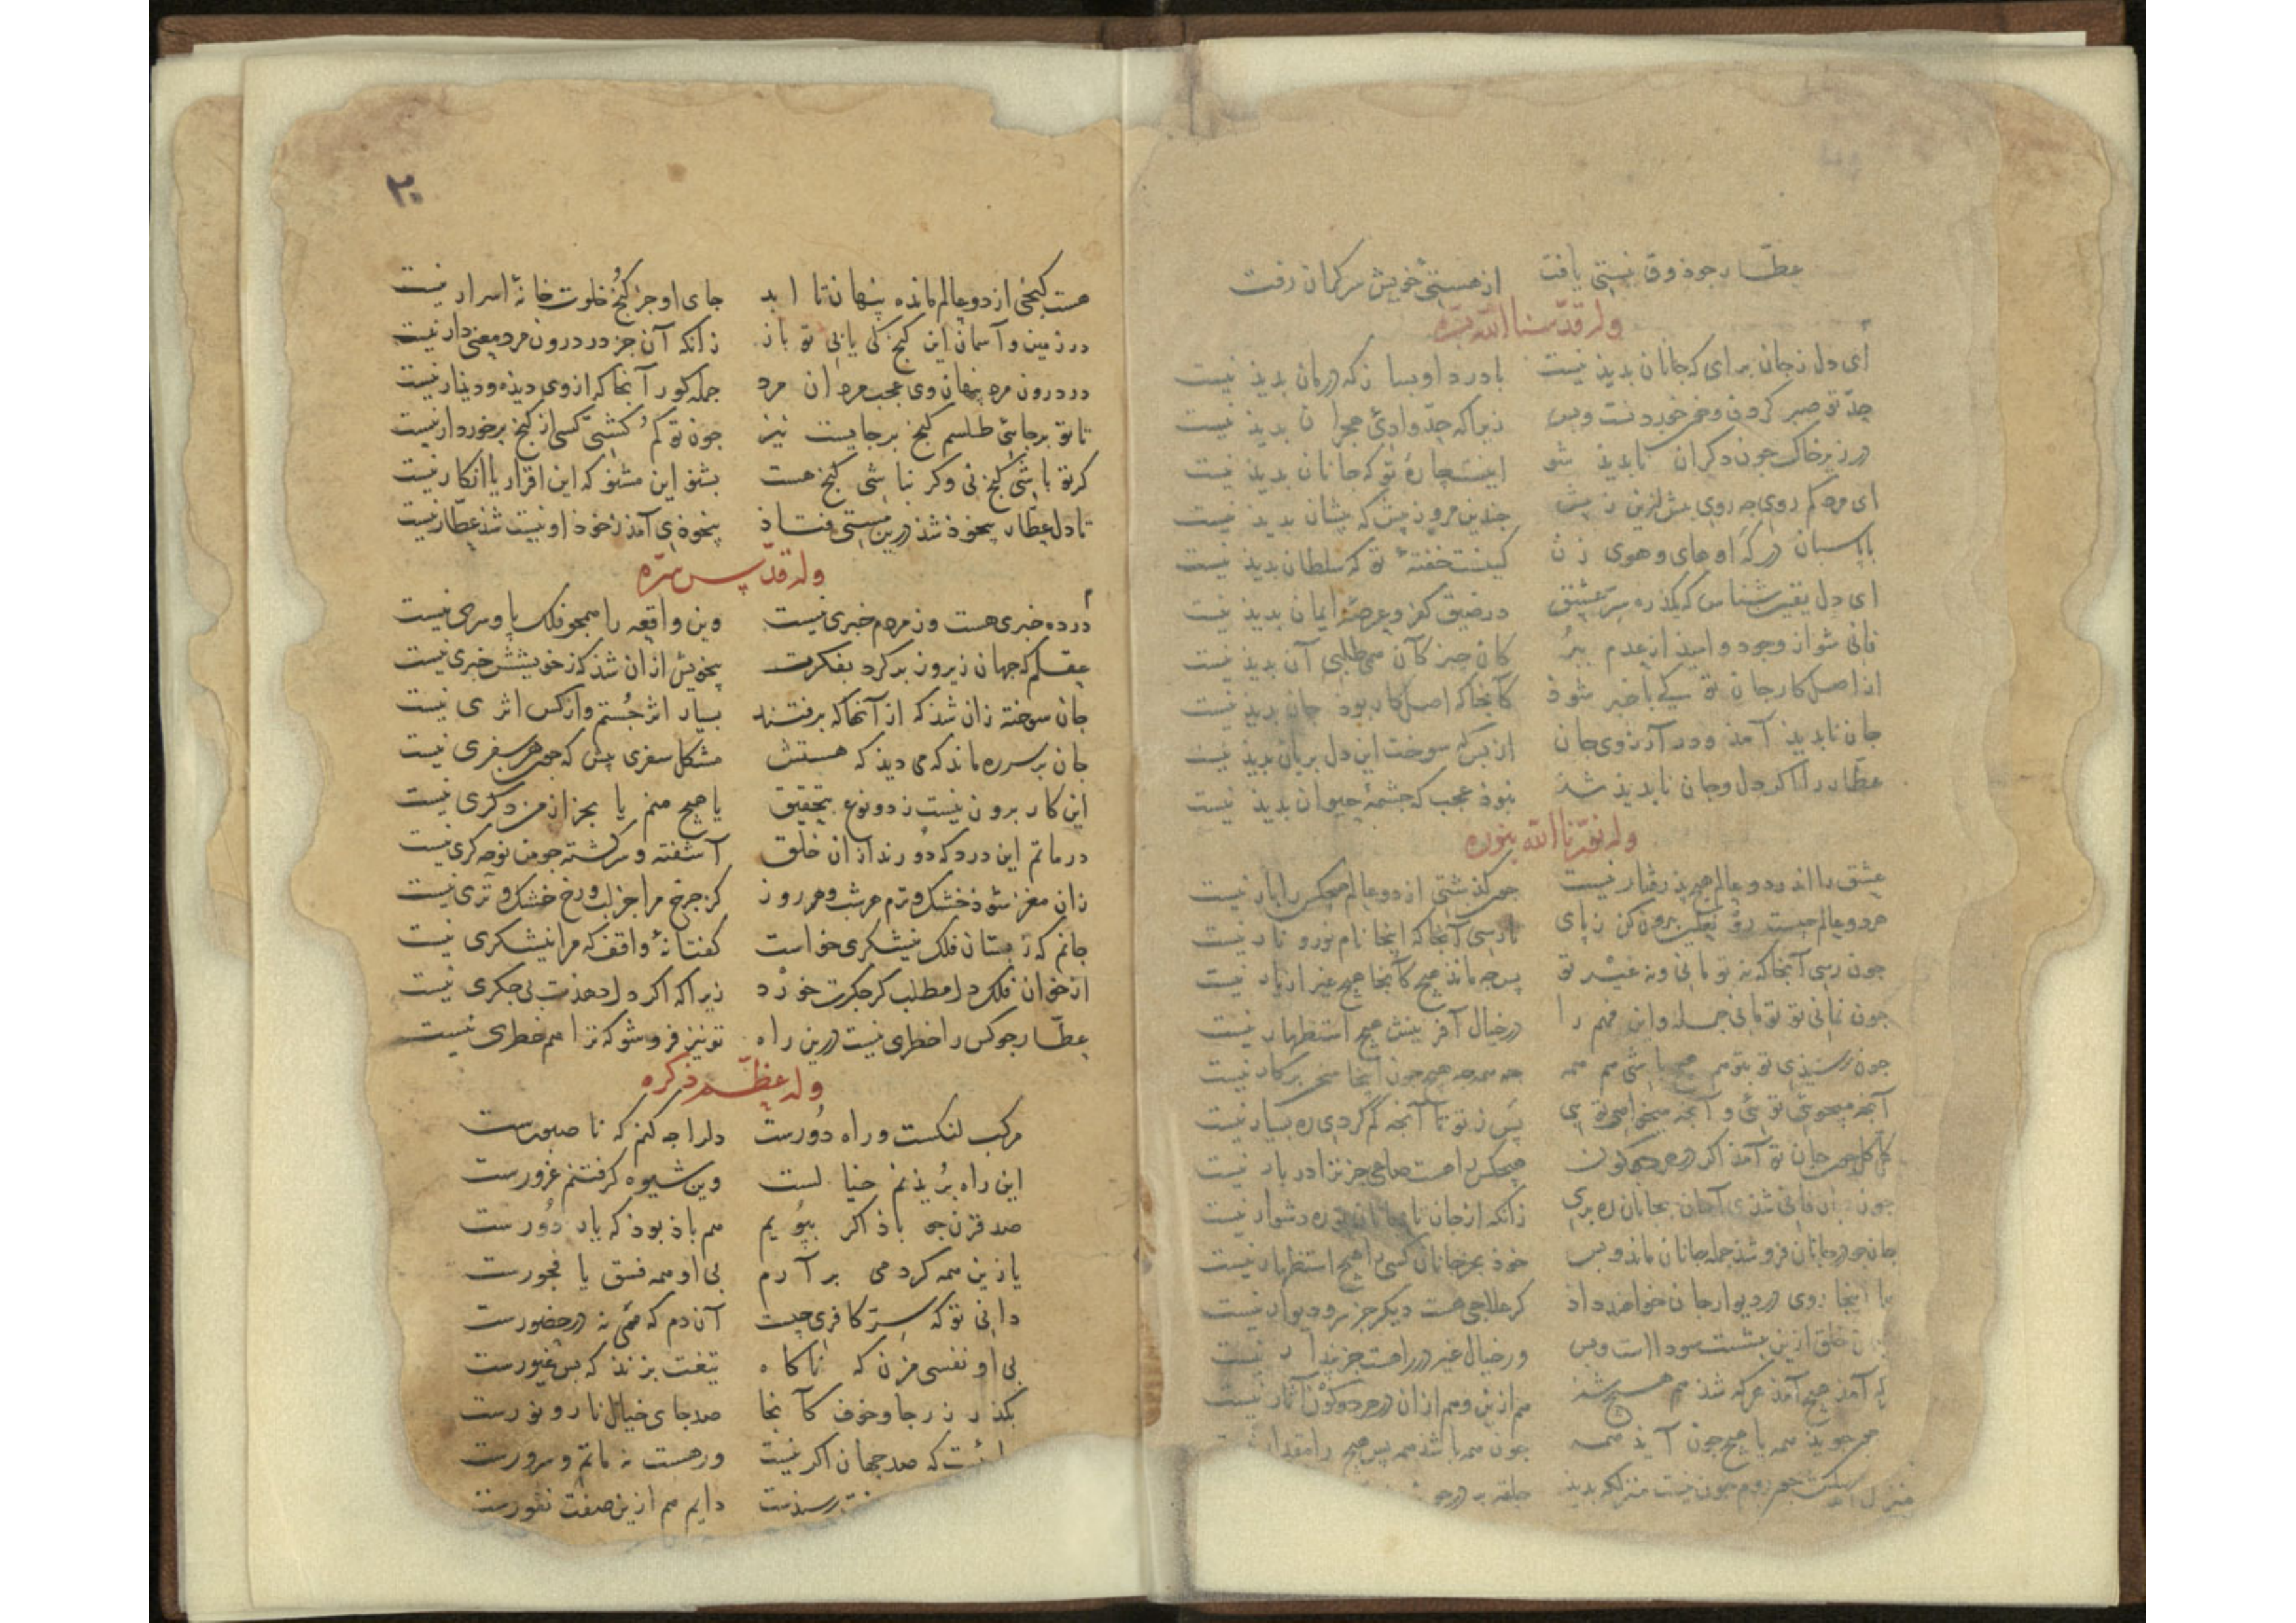 عطّار جو ذوق نیستی یافت از هستیٔ خویش سرکران رفت
وله قدّسنا الله بسرّه
ای دل ز جان برای که جانان بدیذ نیست با درد او بساز که درمان بدیذ نیست
حدّ تو صبر کردن و خون خوردنست وبس زیرا که حدّ وادئ هجران بدیذ نیست
در زیر خاک جون دکران نابدید شو اینست چارهٔ تو که جانان بدید نیست
ای مرد کم روی جه روی بیش ازین ز پیش جندین مرو ز پیش که پیشان بدید نیست
با پاسبان درکه او های و هوی زن کینست خفتهٔ تو که سلطان بدیذ نیست
ای دل یقین شناس که یکذره سرّ عشق در ضیق کفر و عرصهٔ ایمان بدیذ نیست
فانی شو از وجود و امیذ از عدم ببُر کان جیز کآن همی طلبی آن بدیذ نیست
از اصل کار جان تو کی با خبر شوذ کآنجا که اصل کار بوذ جان بدیذ نیست
جان نابدیذ آمذ و در آرزوی جان از بس که سوخت این دل بریان بدید نیست
عطّار را اکر دل و جان نابدیذ شذ نبوذ عجب که جشمهٔ حیوان بدیذ نیست
وله نوّرنا الله بنوره
عشق را اندر دو عالم هیج بذرفتار نیست جون کذشتی از دو عالم هیجکس را بار نیست
هر دو عالم جیست رَوْ نعلین بیرون کن ز پای تا رسی آنجا که اینجا نام نور و نار نیست
جون رسی آنجا که نه تو مانی ونه غیر تو پس جه ماند هیج کآنجا هیج غیر از یار نیست
جون نمانی تو تو مانی جمله و این فهم را در خیال آفرینش هیج استظهار نیست
جون رسیذی تو بتو هم هیج باشی هم همه جه همه جه هیج جون اینجا سخن بر کار نیست
آنجه میجوئی توئی و آنجه میخواهی توی پس ز تو تا آنجه کم کردی ره بسیار نیست
کل کل جون جان تو آمذ اکر در هر دو کون هیجکس را هست صاحی جز ترا در بار نیست
جون بجان فانی شدی آسان بجانان ره بری زانکه از جان تا بجانان تو ره دشوار نیست
جان جو در جانان فرو شذ جمله جانان ماند و بس خوذ بجز جانان کسی را هیج استظهار نیست
تا اینجا روی در دیوار جان خواهند داذ کر علاجی هست دیکر جز سر و دیوار نیست
خلق ازین بشست سودا است وبس ور خیال غیر در راهست جز پندار نیست
که آمذ هیج آمذ هر که شذ هم هیج شذ هم ازین و هم ازان در هر دو کَوْن آثار نیست
هیج جویذ همه یا هیج جون آیذ همه جون همه باشذ همه پس هیج را مقدار
هست کنجی از دو عالم مانده پنهان تا ابد جای او جز کُنج خلوت خانهٔ اسرار نیست
در زمین و آسمان این کنج کی یابی تو باز زانکه آن جز در درون مرد معنی دار نیست
در درون مرد پنهان وی عجب مردان مرد جمله کور آنجا که از وی دیذه و دیذار نیست
تا تو برجائی طلسم کنج برجایست نیز جون تو کم کشتی کسی از کنج برخوردار نیست
کر تو باشی کنج نی و کر نباشی کنج هست بشنو این مشنو که این اقرار یا انکار نیست
تا دل عطّار بیخوذ شذ درین مستی فتاذ بیخودی آمذ ز خود او نیست شذ عطّار نیست
وله قدّس سرّه
در ده خبری هست وز مردم خبری نیست وین واقعه را همجو فلک پا و سری نیست
عقلم که جهان زیر و زبر کرد بفکرت بیخویش ازان شذ که ز خویشش خبری نیست
جان سوخته زان شذ که از آنها که برفتند بسیار اثر جُستم و از کس اثری نیست
جان بر سر ره ماند که می دیذ که هستش مشکل سفری پیش که جون هر سفری نیست
این کار برون نیست ز دو نوع بتحقیق یا هیج منم یا بجز از من دکری نیست
در ماتم این درد که دُورند ازان خلق آشفته و سرکشته جو من نوحه کری نیست
زان مغز شوذ خشک و ترم هر شب و هر روز کز جرخ مرا جز لب و رخ خشک و تری نیست
جانم که ز بستان فلک نیشکری خواست کفتا نهٔ واقف که مرا نیشکری نیست
از خوان فلک دل مطلب کر جکرت خورد زیرا که اکر دل دهذت بی جکری نیست
عطّار جو کس را خطری نیست درین راه تو نیز فرو شو که ترا هم خطری نیست
وله عظّم ذکره
مرکب لنکست و راه دُورست دلرا جه کنم که نا صبورست
این راه بُریذنم خیالست وین شیوه کرفتنم غرورست
صد قرن جو باذ اکر بپُویم هم باذ بوذ که یار دُورست
با این همه کرد می بر آرم بی او همه فسق یا فجورست
دانی تو که سرّ کافری جیست آن دم که همی نه در حضورست
بی او نفسی مزن که ناکاه تیغت بزنذ که بس غیورست
بکذر ز رجا و خوف کآنجا صد جای خیال نار و نورست
که صد جهان اکر نیست ور هست نه ماتم و سرورست
رسذست دایم هم ازین صفت نفورست